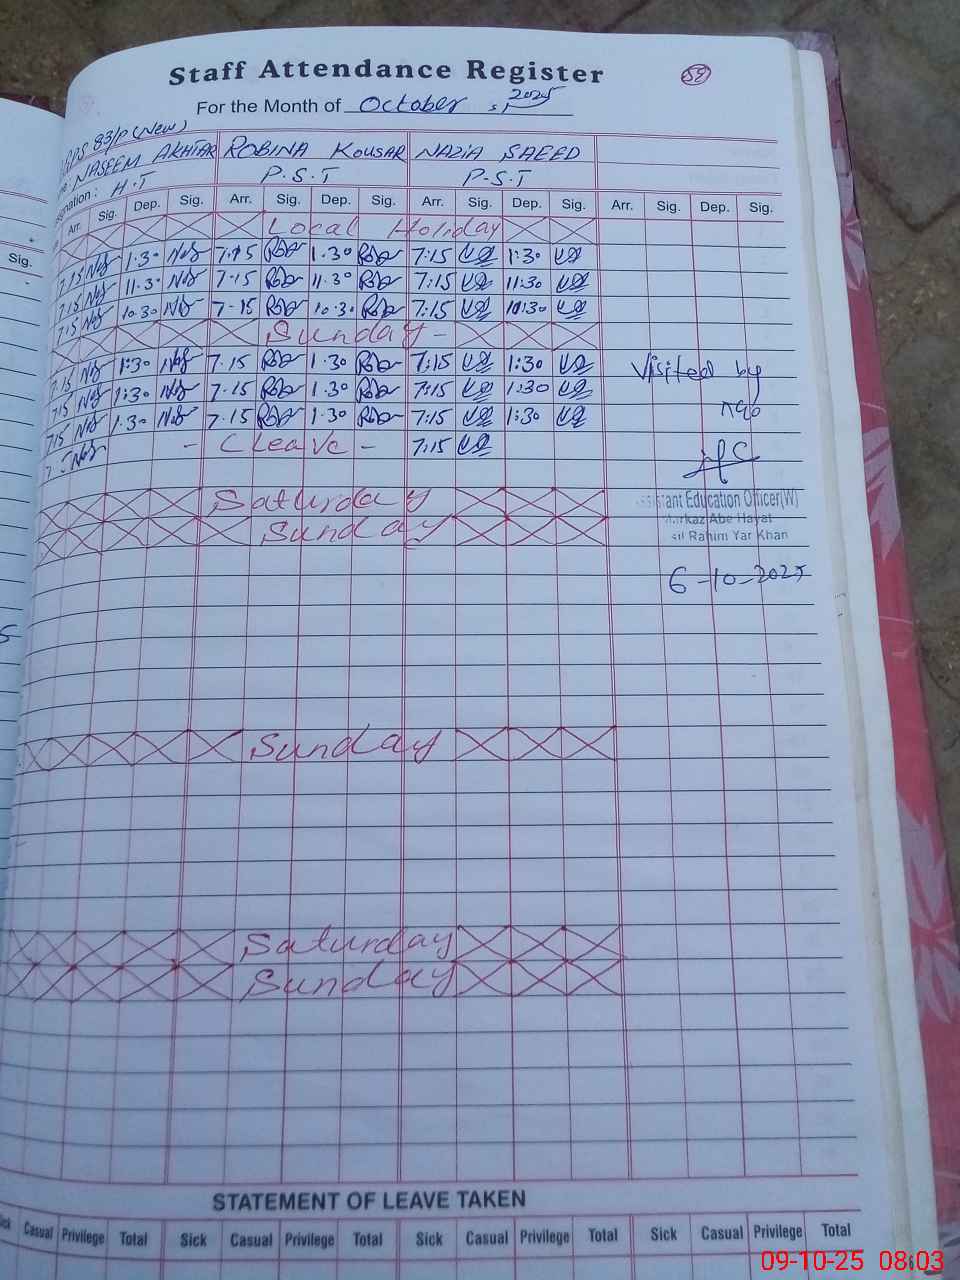 Staff Attendance Register 58
For the Month of October 2025
83/P (New)
NASEEM AKHTAR ROBINA KOUSAR NAZIA SAEED
H.T P.S.T P.S.T
Arr. Sig. Dep. Sig. Arr. Sig. Dep. Sig. Arr. Sig. Dep. Sig. Arr. Sig. Dep. Sig.
Local Holiday
Sig.
7.15 1.30 7.15 1.30 7:15 1:30
7.15 11.30 7.15 11.30 7:15 11:30
7.15 10.30 7-15 10.30 7:15 10:30
Sunday-
7.15 1:30 7.15 1.30 7:15 1:30
7.15 1:30 7.15 1.30 7:15 1:30
7.15 1.30 7.15 1.30 7:15 1:30
- C leave - 7:15
Visited by
Saturday
Sunday
Assistant Education Officer(W)
Markaz Abe Hayat
Rahim Yar Khan
6-10-2025
Sunday
Saturday
Sunday
STATEMENT OF LEAVE TAKEN
Sick Casual Privilege Total Sick Casual Privilege Total Sick Casual Privilege Total Sick Casual Privilege Total
09-10-25 08:03